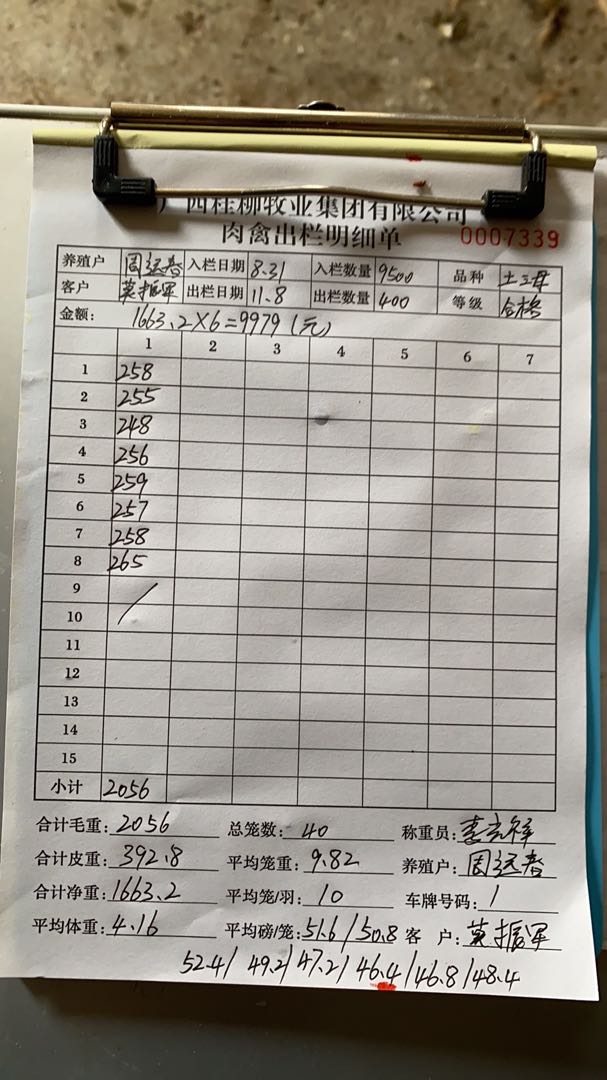 广西桂柳牧业集团有限公司
肉禽出栏明细单 0007339
养殖户 周远春 入栏日期 8.31 入栏数量 9500 品种 土二母
客户 莫振军 出栏日期 11.8 出栏数量 400 等级 合格
金额: 1663.2×6=9979(元)
1 2 3 4 5 6 7
1 258
2 255
3 248
4 256
5 259
6 257
7 258
8 265
9
10
11
12
13
14
15
小计 2056
合计毛重: 2056 总笼数: 40 称重员:
合计皮重: 392.8 平均笼重: 9.82 养殖户: 周远春
合计净重: 1663.2 平均笼/羽: 10 车牌号码: 1
平均体重: 4.16 平均磅/笼: 51.6/50.8 客 户: 莫振军
52.4/49.2/47.2/46.4/46.8/48.4